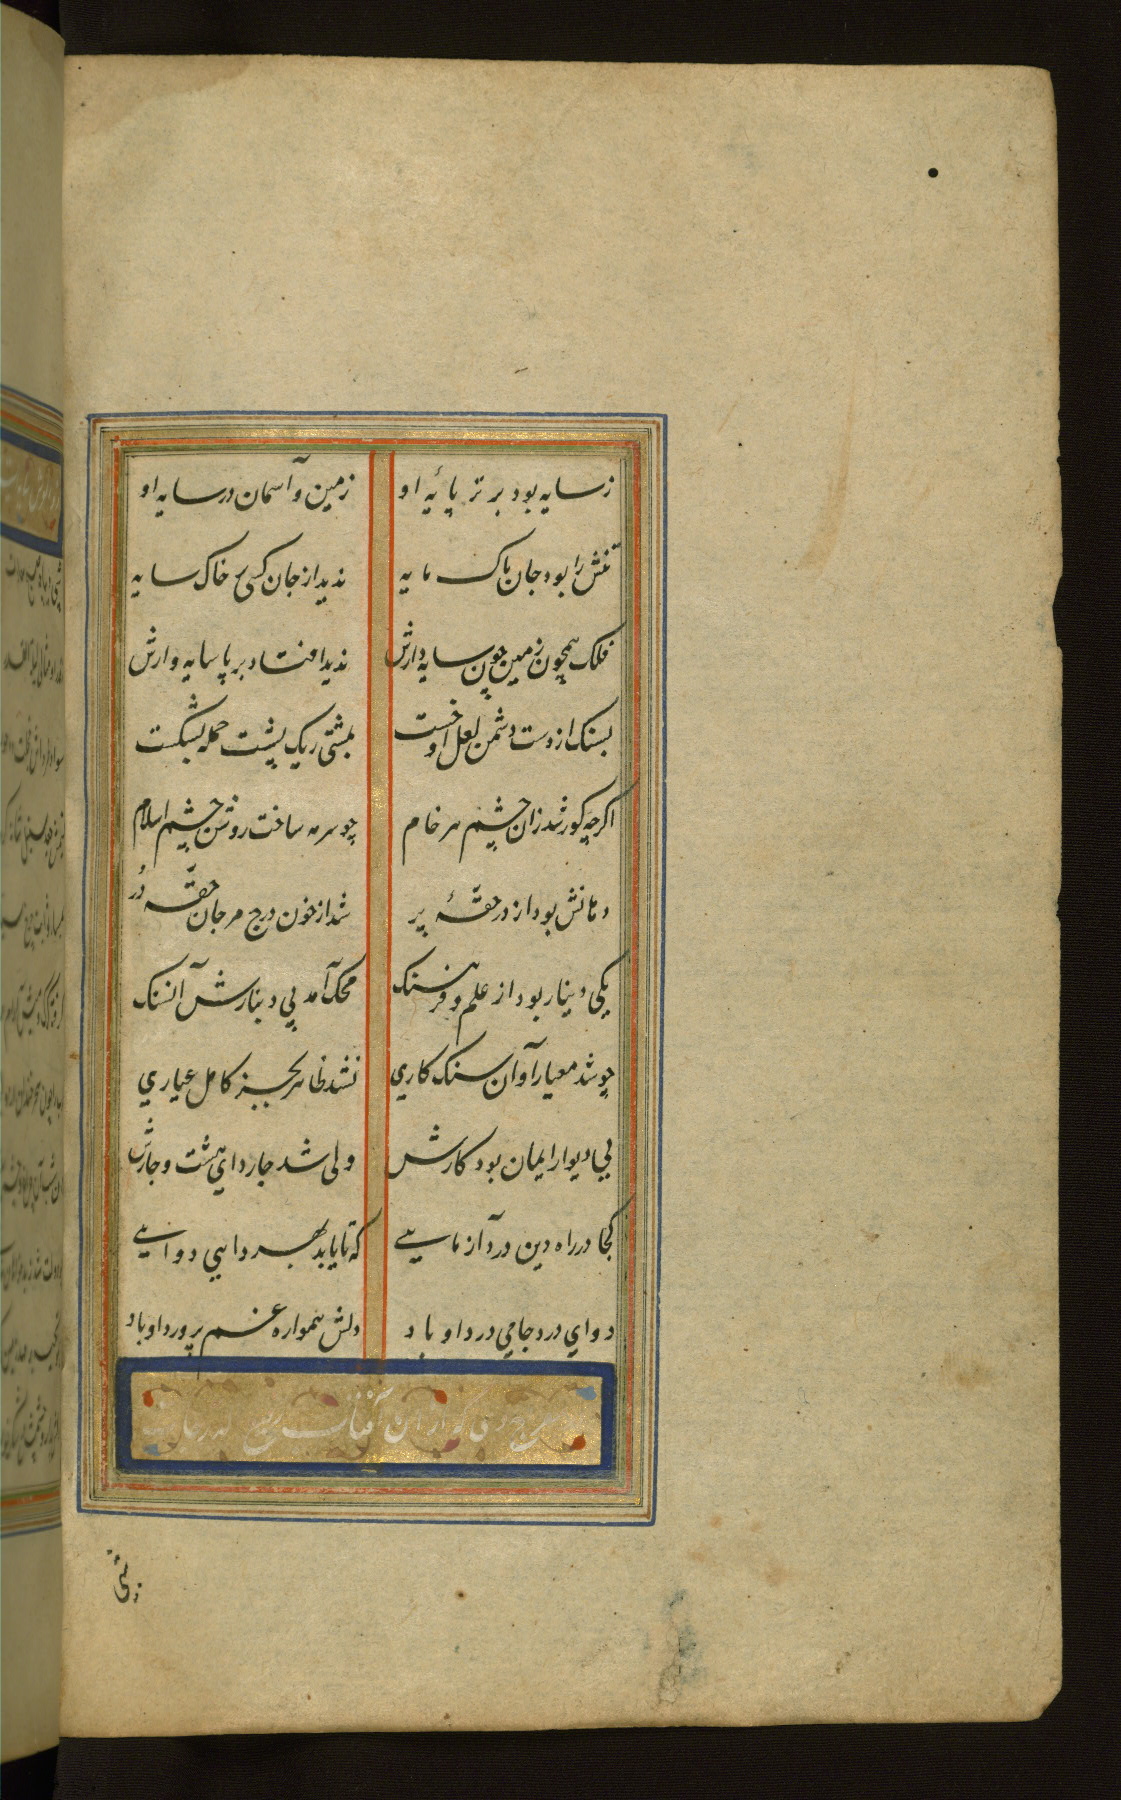 زسایه بود برتر پائه او زمین و آسمان در سایه او
تنش را بود جان پاک مایه ندید از جان کسی خاک سایه
فلک همچون زمین چون سایه دارش ندید افتاد بر پا سایه وارش
بسنک از دست دشمن لعل او خست بمشتی ریک پشت حمله بشکست
اکرچه کور شد زان چشم هر خام چو سرمه ساخت روشن چشم اسلام
دهانش بود از در حقهٔ پر شد از خون درج مرجان حقه در
یکی دینار بود از علم و فرهنک محک آمد پی دینارش آن سنک
چو شد معیار او آن سنک کاری نشد ظاهر بجز کامل عیاری
پی دیوار ایمان بود کارش ولی شد چار دای هشت و چارش
کجا در راه دین درد آزمایی که تا یابد بهر دایی دوایی
دوای درد جامی درد او باد دلش همواره غم پرورد او باد